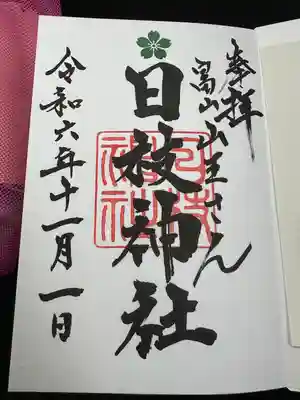 奉拝
富山山王さん
日枝神社
日枝神社
令和六年十一月一日